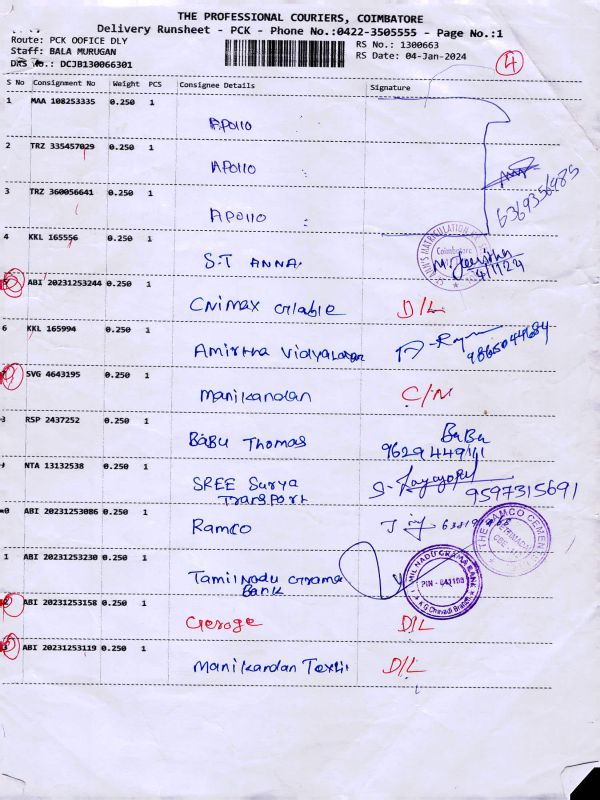 THE PROFESSIONAL COURIERS, COIMBATORE
Delivery Runsheet - PCK - Phone No.:0422-3505555 - Page No.:1
Route: PCK OOFICE DLY
Staff: BALA MURUGAN
DRS No.: DCJB130066301
RS No.: 1300663
RS Date: 04-Jan-2024
4
S No Consignment No Weight PCS Consignee Details Signature
1 MAA 108253335 0.250 1
APOllO
2 TRZ 335457029 0.250 1
APOllO
3 TRZ 360056641 0.250 1
APOllO
6369356985
4 KKL 165556 0.250 1
S.T ANNA.
Coimbatore
4/1/24
5 ABI 20231253244 0.250 1
D/L
6 KKL 165994 0.250 1
Amirtha Vidyalayam
9865044684
SVG 4643195 0.250 1
manikandan C/N
RSP 2437252 0.250 1
BABU Thomas BaBu
9629449141
NTA 13132538 0.250 1
SREE Surya
Transport
9597315691
ABI 20231253086 0.250 1
Ramco
THE RAMCO CEMENT
1 ABI 20231253230 0.250 1
Tamil Nadu Grama
Bank
TAMIL NADU GRAMA BANK
PIN - 641103
K G Chavadi Branch
ABI 20231253158 0.250 1
Geroge D/L
ABI 20231253119 0.250 1
Manikandan D/L